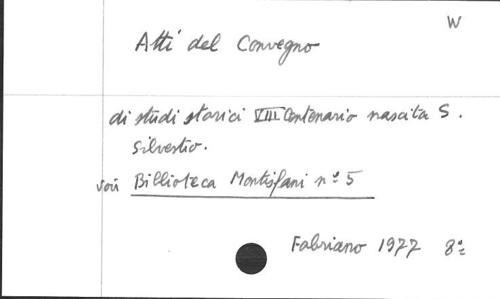 W
Atti del Convegno
di studi storici VIII Centenario nascita S.
Silvestro.
voir Biblioteca Montisfani nº 5
Fabriano 1977 8º